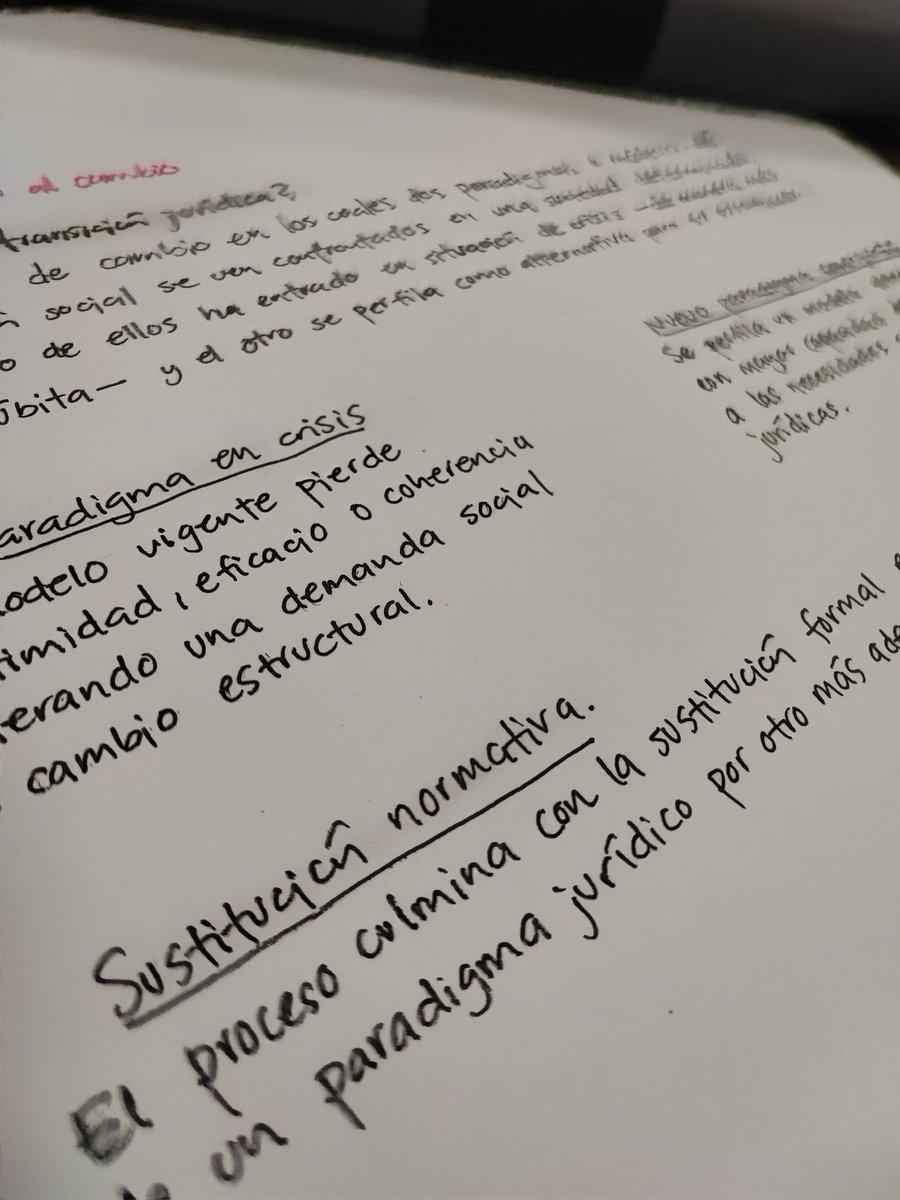 al cambio
transición jurídica?
de cambio en los cuales dos paradigmas
social se ven confrontados en una sociedad
de ellos ha entrado en situación de crisis
úbita— y el otro se perfila como alternativa para su
Nuevo paradigma emergente
se perfila un modelo
con mayor capacidad
a las necesidades
jurídicas.
aradigma en crisis
odelo vigente pierde
timidad, eficacio o coherencia
erando una demanda social
cambio estructural.
Sustitución normativa.
El proceso culmina con la sustitución formal
un paradigma jurídico por otro más ade